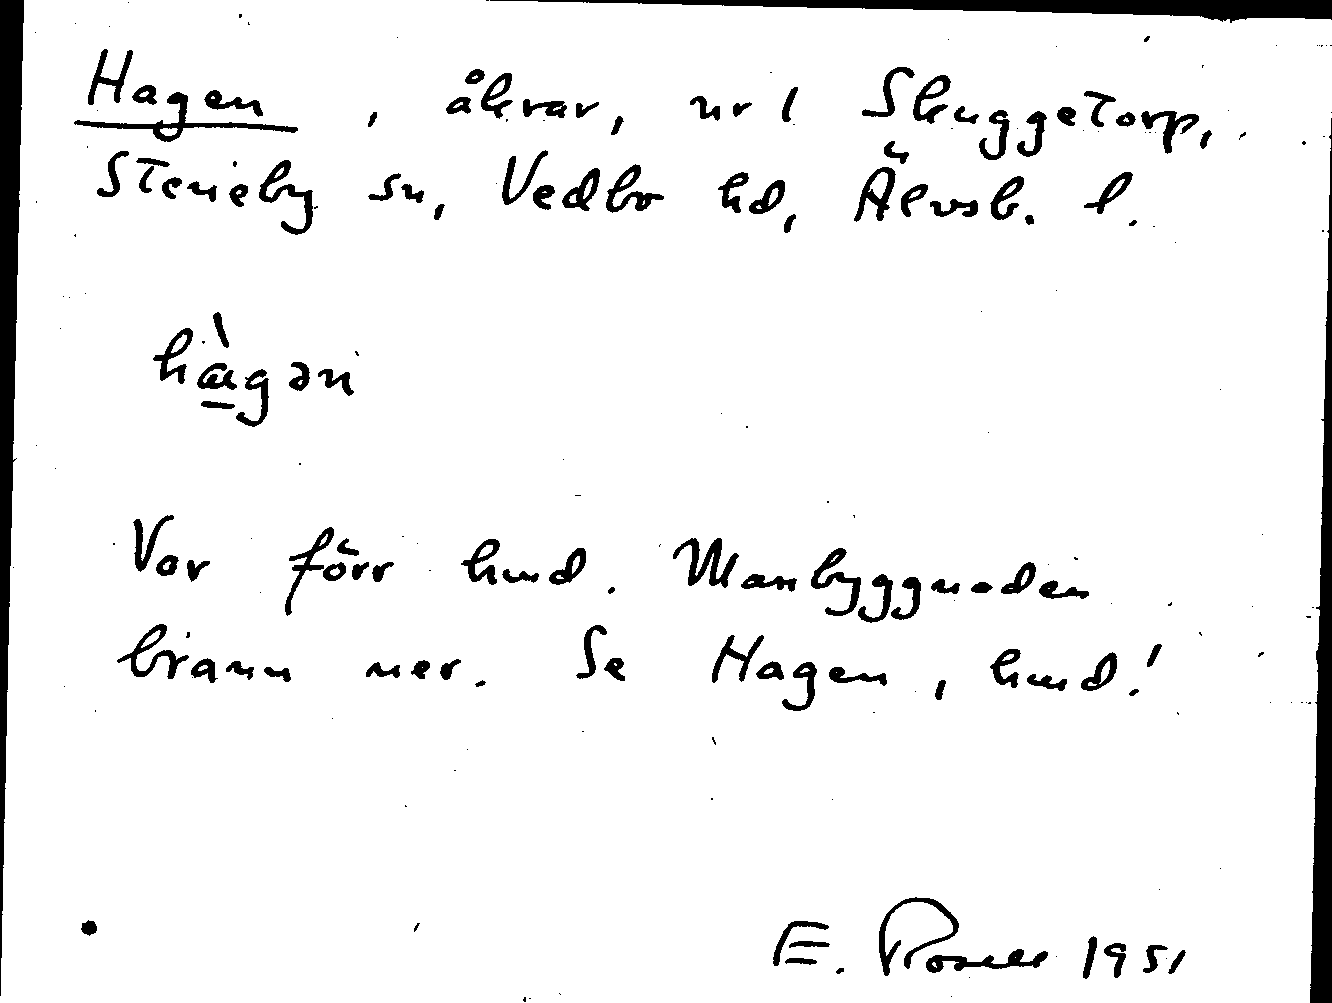 Hagen, åkrar, nr 1 Skuggetorp,
Steneby sn, Vedbo hd, Älvsb. l.
hàgən
Var förr hmd. Manbyggnaden
brann ner. Se Hagen, hmd!
E. Rosell 1951